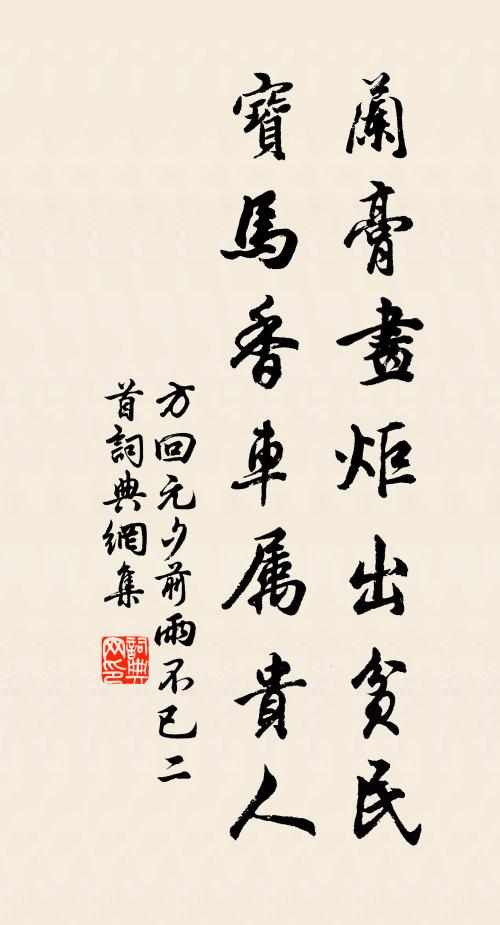 蘭膏畫炬出貧民
寶馬香車属貴人
方回元夕前雨不已二
首詞典網集
詞典
网印